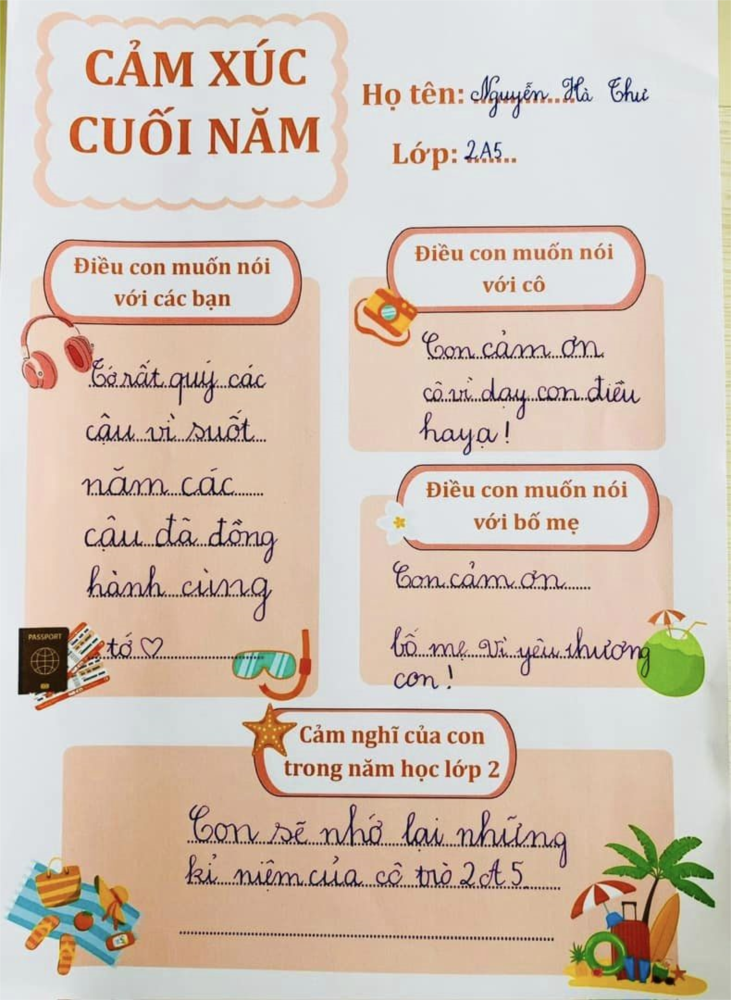 CẢM XÚC
CUỐI NĂM
Họ tên: Nguyễn Hà Thư
Lớp: 2A5
Điều con muốn nói
với các bạn
Tớ rất quý các
cậu vì suốt
năm các
cậu đã đồng
hành cùng
tớ ♡
Điều con muốn nói
với cô
Con cảm ơn
cô vì dạy con điều
hay ạ!
Điều con muốn nói
với bố mẹ
Con cảm ơn
bố mẹ vì yêu thương
con!
PASSPORT
Cảm nghĩ của con
trong năm học lớp 2
Con sẽ nhớ lại những
kỉ niệm của cô trò 2A5.